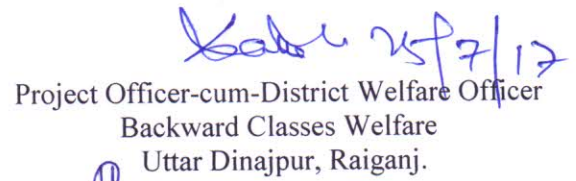 25/7/17
Project Officer-cum-District Welfare Officer
Backward Classes Welfare
Uttar Dinajpur, Raiganj.